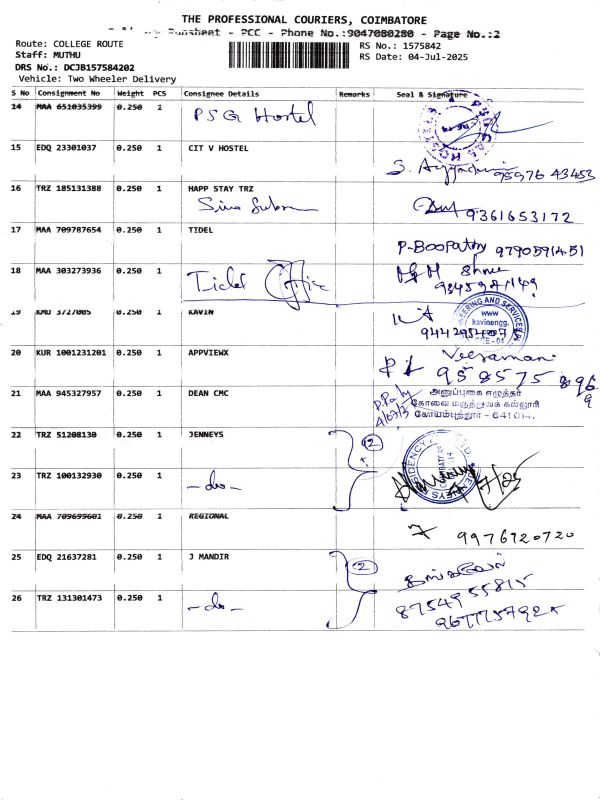 THE PROFESSIONAL COURIERS, COIMBATORE
Runsheet - PCC - Phone No.:9047080280 - Page No.:2
Route: COLLEGE ROUTE
Staff: MUTHU
DRS No.: DCJB157584202
Vehicle: Two Wheeler Delivery
RS No.: 1575842
RS Date: 04-Jul-2025
S No Consignment No Weight PCS Consignee Details Remarks Seal & Signature
14 MAA 651035399 0.250 1 PSG Hostel
15 EDQ 23301037 0.250 1 CIT V HOSTEL
95976 43453
16 TRZ 185131388 0.250 1 HAPP STAY TRZ
9361653172
17 MAA 709787654 0.250 1 TIDEL
P-Boopathy 9790591451
18 MAA 303273936 0.250 1 Tidel Office
19 KMU 3727005 0.250 1 KAVIN
www
kavinengg.
20 KUR 1001231201 0.250 1 APPVIEWX
Veeramani
958575 8969
21 MAA 945327957 0.250 1 DEAN CMC
அனுப்புகை எழுத்தர்
கோவை மருத்துவக் கல்லூரி
கோயம்புத்தூர் - 641014.
22 TRZ 51208130 0.250 1 JENNEYS 2
23 TRZ 100132930 0.250 1 -do-
24 MAA 709699601 0.250 1 REGIONAL
9976920720
25 EDQ 21637281 0.250 1 J MANDIR 2
26 TRZ 131301473 0.250 1 -do-
8754955815